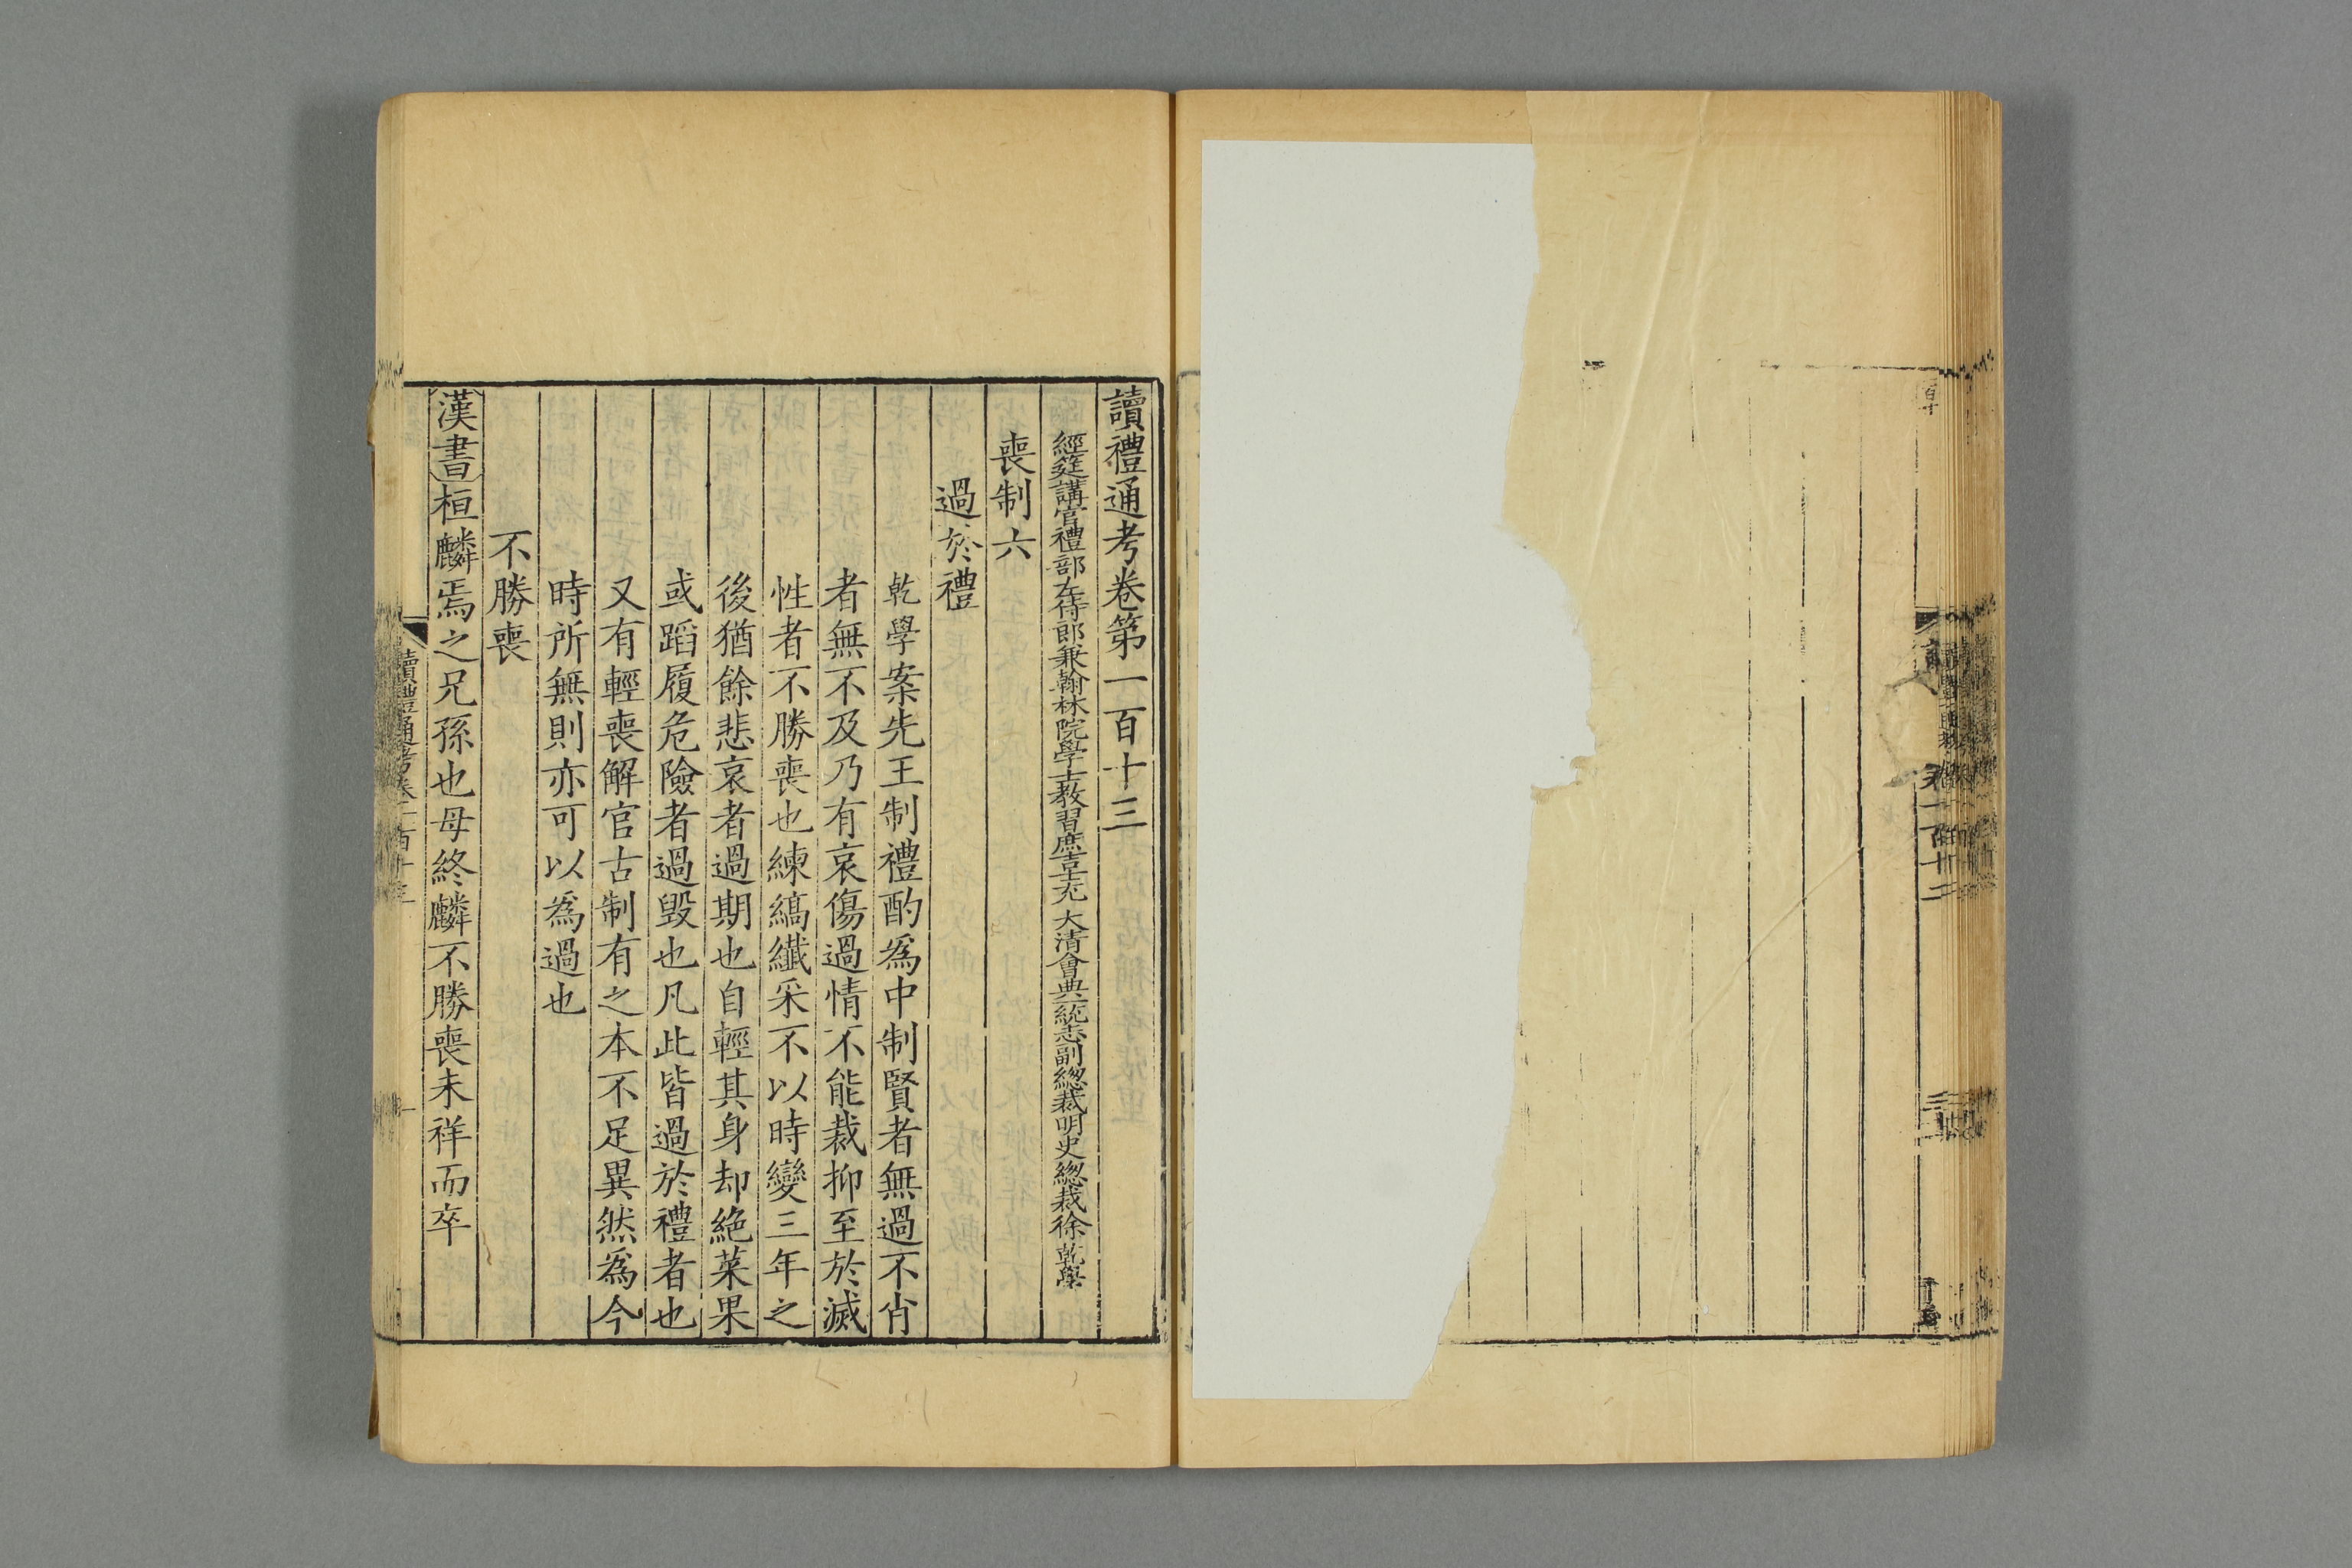 讀禮通考卷第一百十三
經筵講官禮部左侍郎兼翰林院學士教習庶吉士充 大清會典一統志副總裁明史總裁徐乾學
喪制六
過於禮
乾學案先王制禮酌爲中制賢者無過不肖
者無不及乃有哀傷過情不能裁抑至於滅
性者不勝喪也練縞纖采不以時變三年之
後猶餘悲哀者過期也自輕其身却絶菜果
或蹈履危險者過毀也凡此皆過於禮者也
又有輕喪解官古制有之本不足異然爲今
時所無則亦可以爲過也
不勝喪
漢書桓麟焉之兄孫也母終麟不勝喪未祥而卒
讀禮通考卷一百十三
一